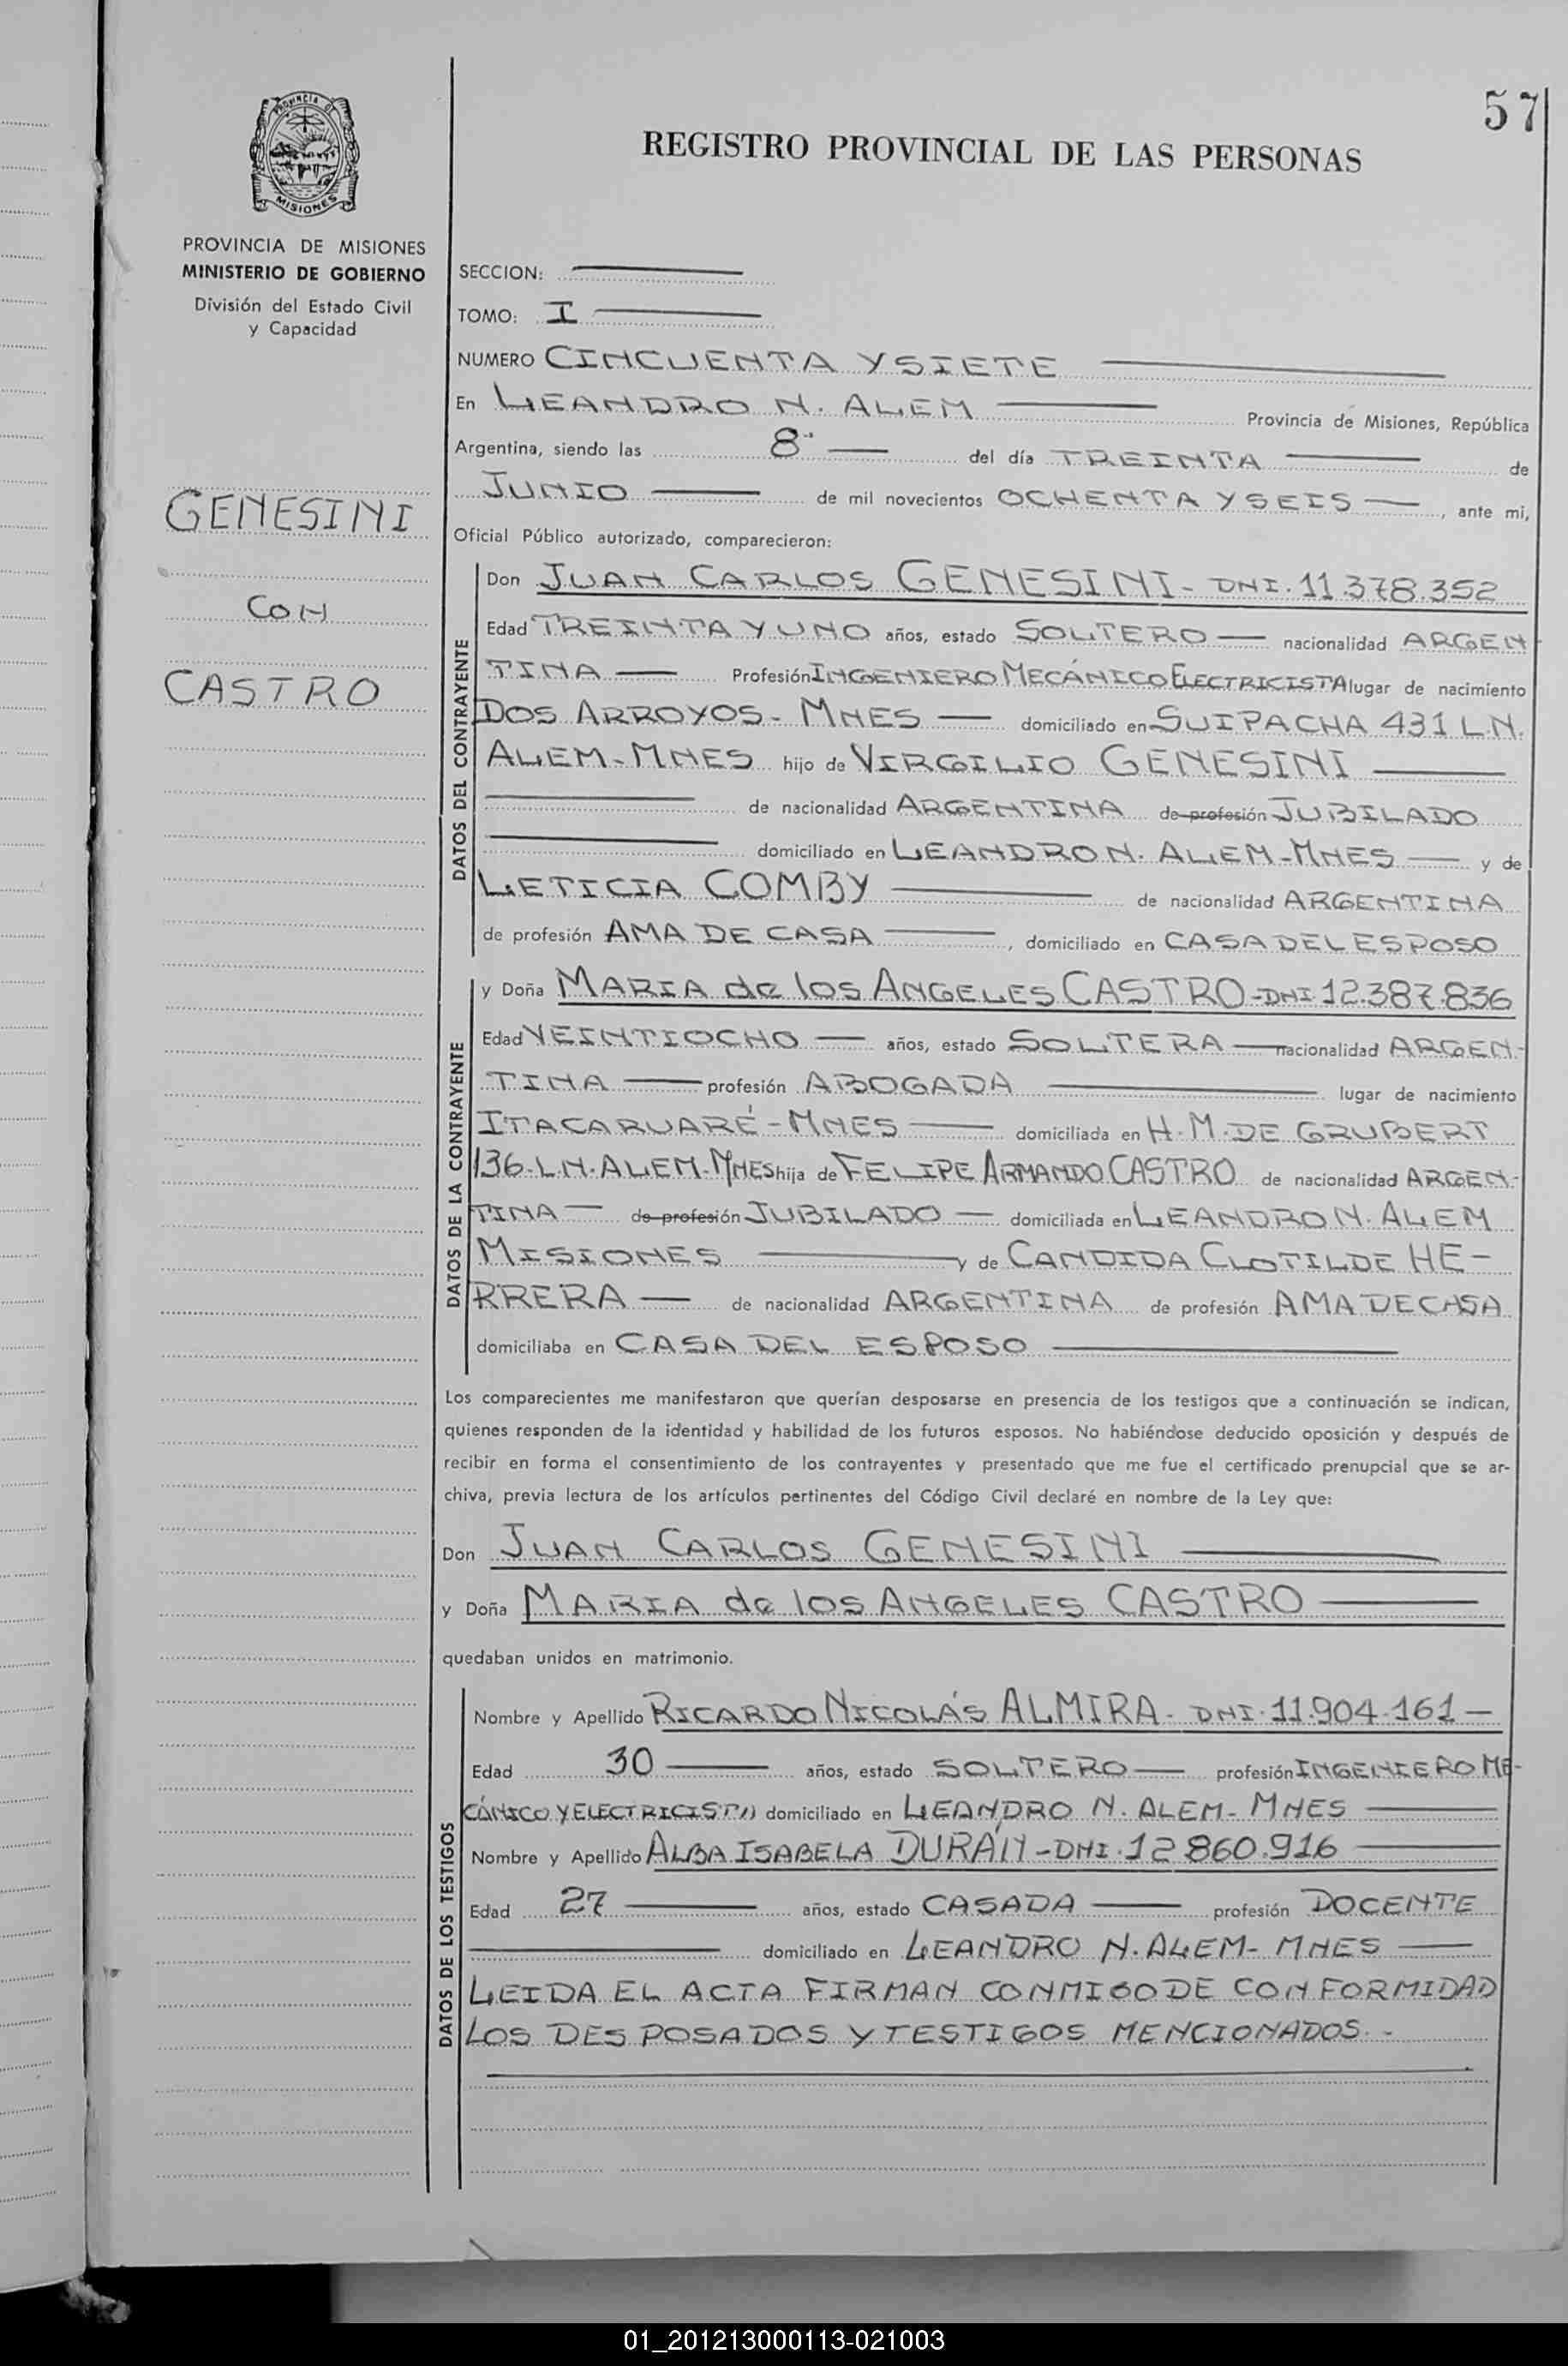 57
REGISTRO PROVINCIAL DE LAS PERSONAS
PROVINCIA DE MISIONES
MINISTERIO DE GOBIERNO
División del Estado Civil
y Capacidad
GENESINI
CON
CASTRO
SECCION:
TOMO: I
NUMERO CINCUENTA Y SIETE
En LEANDRO N. ALEM Provincia de Misiones, República
Argentina, siendo las 8 del día TREINTA de
JUNIO de mil novecientos OCHENTA Y SEIS, ante mi,
Oficial Público autorizado, comparecieron:
DATOS DEL CONTRAYENTE
Don JUAN CARLOS GENESINI - DNI. 11.378.352
Edad TREINTA Y UNO años, estado SOLTERO nacionalidad ARGEN
TINA Profesión INGENIERO MECÁNICO ELECTRICISTA lugar de nacimiento
DOS ARROYOS - MNES domiciliado en SUIPACHA 431 L.N.
ALEM - MNES hijo de VIRGILIO GENESINI
de nacionalidad ARGENTINA de profesión JUBILADO
domiciliado en LEANDRO N. ALEM - MNES y de
LETICIA COMBY de nacionalidad ARGENTINA
de profesión AMA DE CASA, domiciliado en CASA DEL ESPOSO
DATOS DE LA CONTRAYENTE
y Doña MARIA de los ANGELES CASTRO - DNI 12.387.836
Edad VEINTIOCHO años, estado SOLTERA nacionalidad ARGEN-
TINA profesión ABOGADA lugar de nacimiento
ITACARUARÉ - MNES domiciliada en H. M. DE GRUBERT
136 - L.N. ALEM - MNES hija de FELIPE ARMANDO CASTRO de nacionalidad ARGEN-
TINA de profesión JUBILADO domiciliada en LEANDRO N. ALEM
MISIONES y de CANDIDA CLOTILDE HE-
RRERA de nacionalidad ARGENTINA de profesión AMA DE CASA
domiciliaba en CASA DEL ESPOSO
Los comparecientes me manifestaron que querían desposarse en presencia de los testigos que a continuación se indican,
quienes responden de la identidad y habilidad de los futuros esposos. No habiéndose deducido oposición y después de
recibir en forma el consentimiento de los contrayentes y presentado que me fue el certificado prenupcial que se ar-
chiva, previa lectura de los artículos pertinentes del Código Civil declaré en nombre de la Ley que:
Don JUAN CARLOS GENESINI
y Doña MARIA de los ANGELES CASTRO
quedaban unidos en matrimonio.
DATOS DE LOS TESTIGOS
Nombre y Apellido RICARDO NICOLÁS ALMIRA - DNI. 11.904.161
Edad 30 años, estado SOLTERO profesión INGENIERO ME-
CÁNICO Y ELECTRICISTA domiciliado en LEANDRO N. ALEM - MNES
Nombre y Apellido ALBA ISABELA DURÁN - DNI. 12.860.916
Edad 27 años, estado CASADA profesión DOCENTE
domiciliado en LEANDRO N. ALEM - MNES
LEIDA EL ACTA FIRMAN CONMIGO DE CONFORMIDAD
LOS DESPOSADOS Y TESTIGOS MENCIONADOS. -
01_201213000113-021003